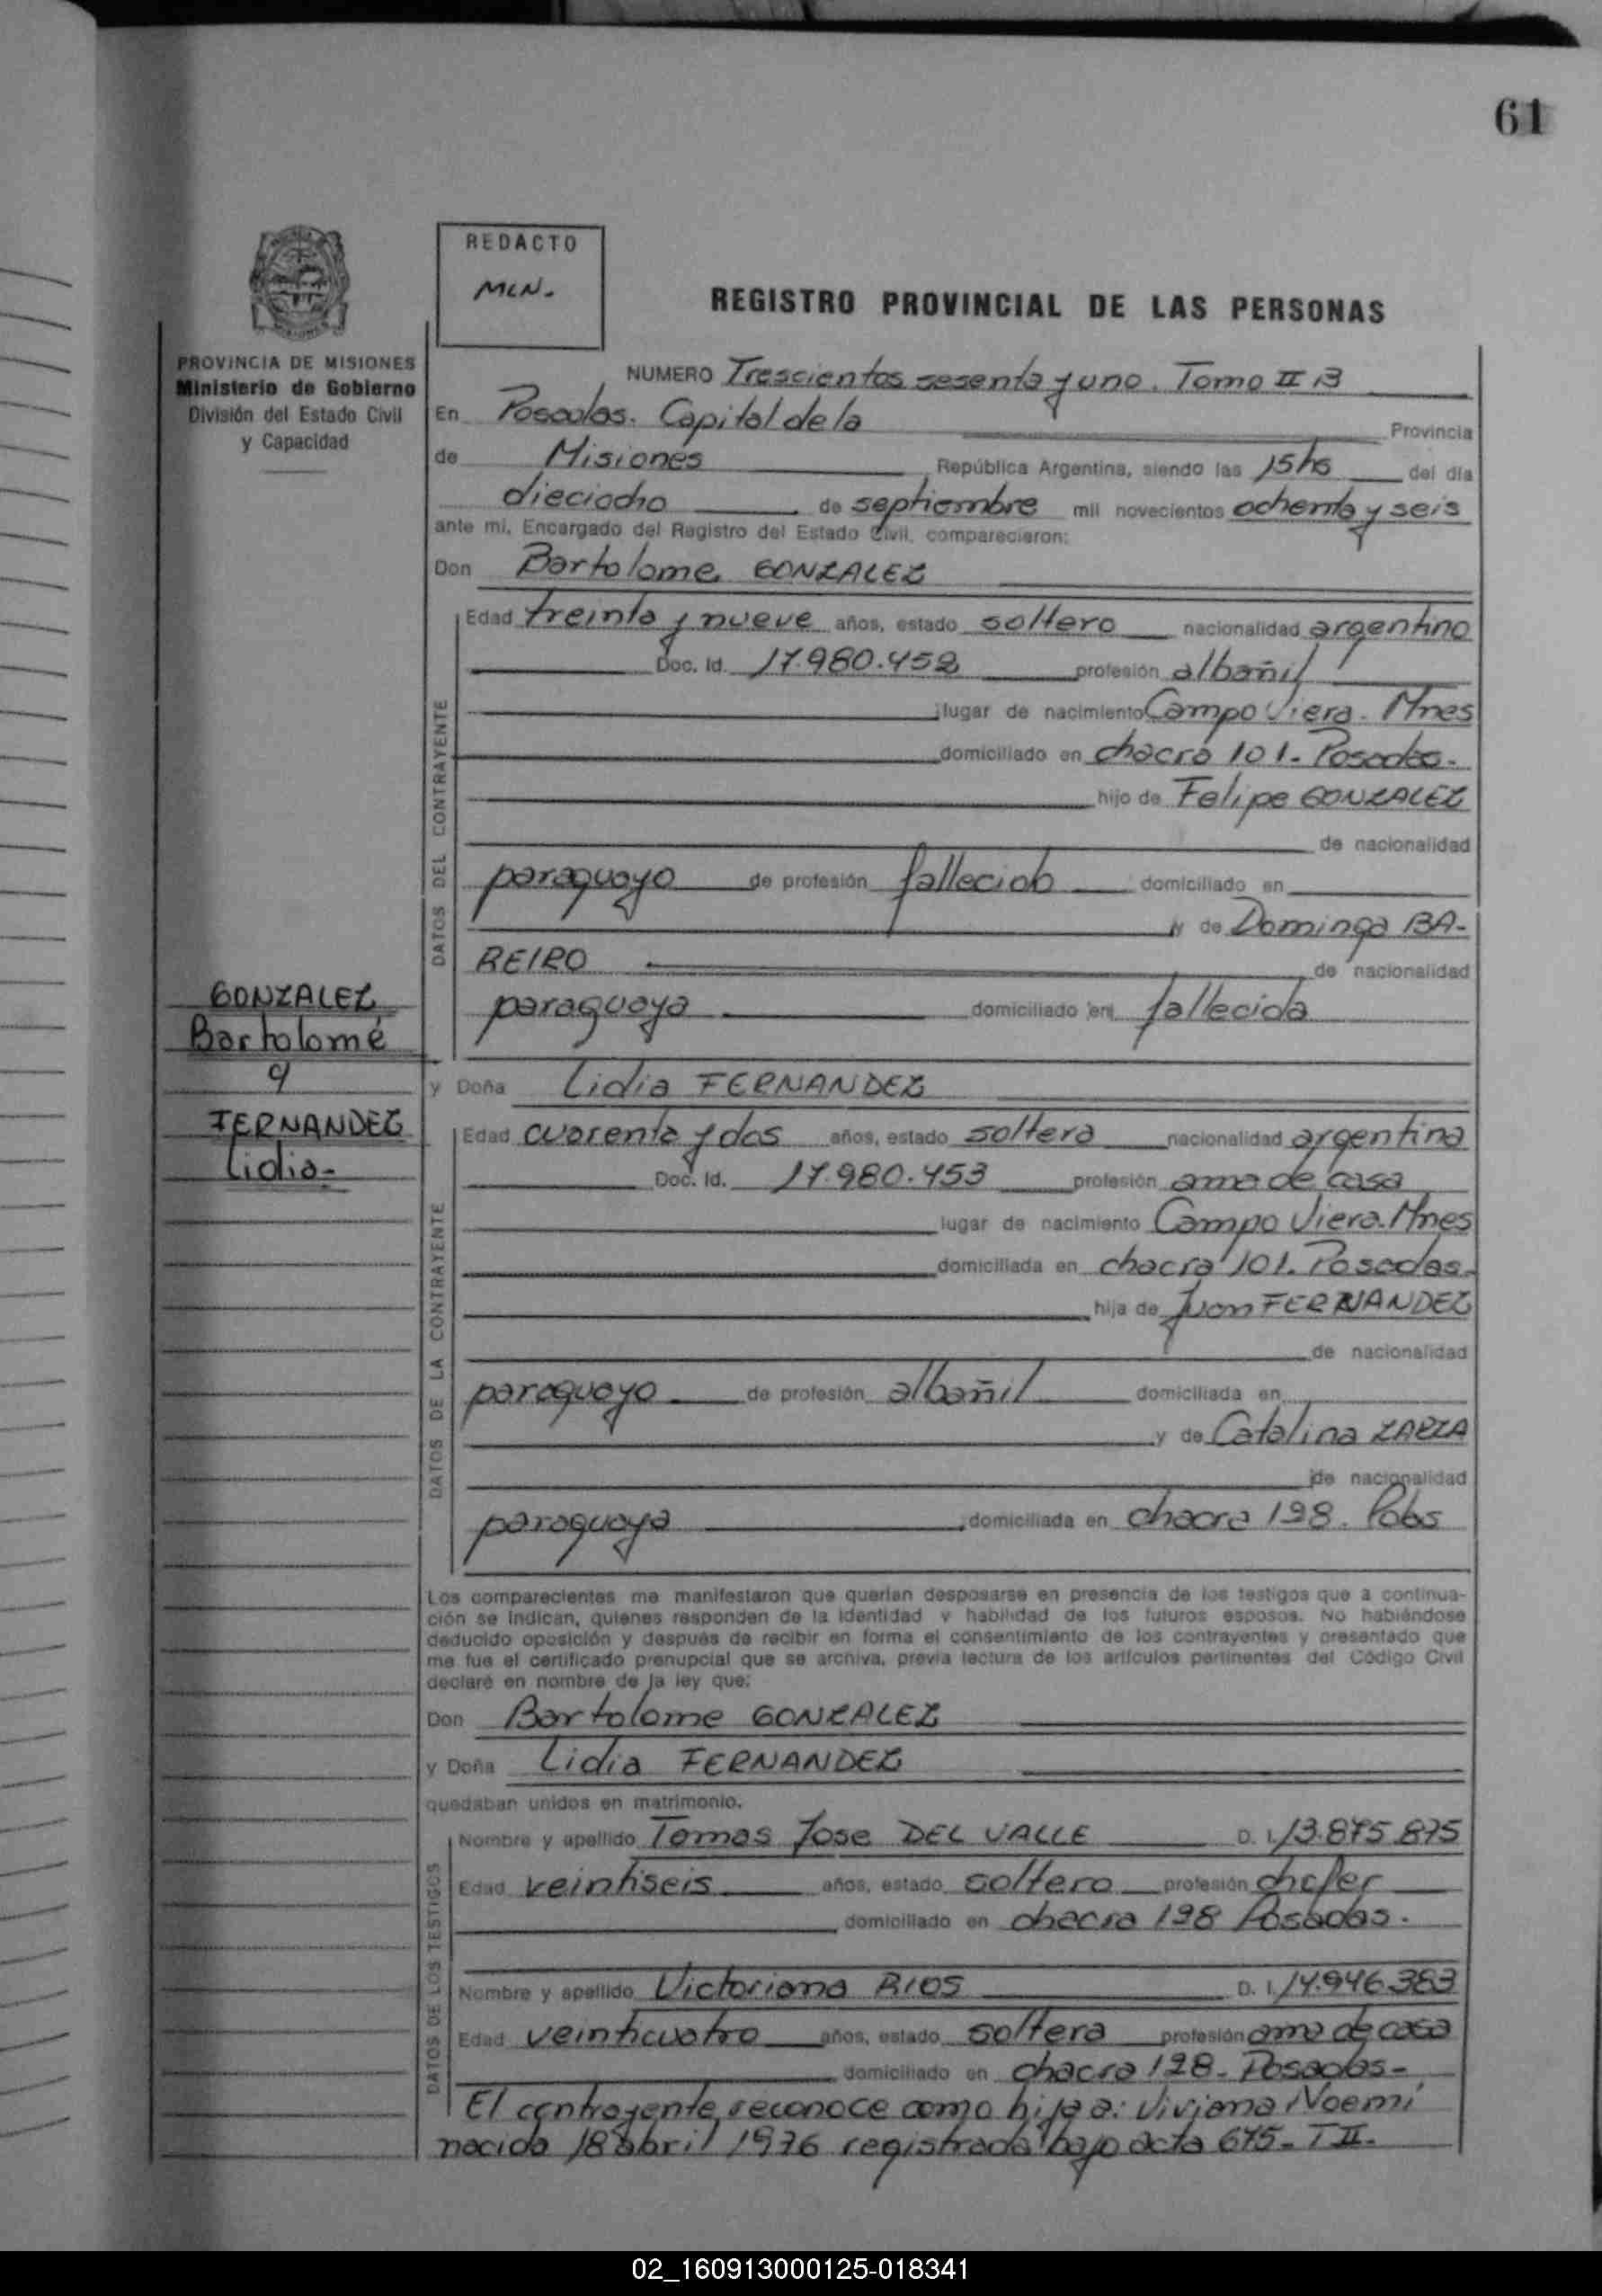 61
REDACTO
MLN.
REGISTRO PROVINCIAL DE LAS PERSONAS
PROVINCIA DE MISIONES
Ministerio de Gobierno
División del Estado Civil
y Capacidad
NUMERO Trescientos sesenta y uno. Tomo II B
En Posadas. Capital de la Provincia
de Misiones República Argentina, siendo las 15hs del día
dieciocho de septiembre mil novecientos ochenta y seis
ante mi, Encargado del Registro del Estado Civil, comparecieron:
Don Bartolome GONZALEZ
DATOS DEL CONTRAYENTE
Edad treinta y nueve años, estado soltero nacionalidad argentino
Doc. Id. 17.980.452 profesión albañil
lugar de nacimiento Campo Viera. Mnes
domiciliado en chacra 101. Posadas.
hijo de Felipe GONZALEZ
de nacionalidad
paraguayo de profesión fallecido domiciliado en
y de Dominga BA-
REIRO de nacionalidad
paraguaya domiciliado en fallecida
GONZALEZ
Bartolomé
y
FERNANDEZ
Lidia-
y Doña Lidia FERNANDEZ
DATOS DE LA CONTRAYENTE
Edad cuarenta y dos años, estado soltera nacionalidad argentina
Doc. Id. 17.980.453 profesión ama de casa
lugar de nacimiento Campo Viera. Mnes
domiciliada en chacra 101. Posadas.
hija de Juan FERNANDEZ
de nacionalidad
paraguayo de profesión albañil domiciliada en
y de Catalina ZARZA
de nacionalidad
paraguaya domiciliada en chacra 198. Pdas
Los comparecientes me manifestaron que querían desposarse en presencia de los testigos que a continua-
ción se indican, quienes responden de la identidad y habilidad de los futuros esposos. No habiéndose
deducido oposición y después de recibir en forma el consentimiento de los contrayentes y presentado que
me fue el certificado prenupcial que se archiva, previa lectura de los artículos pertinentes del Código Civil
declaré en nombre de la ley que:
Don Bartolome GONZALEZ
y Doña Lidia FERNANDEZ
quedaban unidos en matrimonio.
DATOS DE LOS TESTIGOS
Nombre y apellido Tomas Jose DEL VALLE D. I. 13.875.875
Edad veintiseis años, estado soltero profesión chofer
domiciliado en chacra 198 Posadas.
Nombre y apellido Victoriana RIOS D. I. 14.946.383
Edad veinticuatro años, estado soltera profesión ama de casa
domiciliado en chacra 198. Posadas-
El contrayente reconoce como hija a: Viviana Noemi
nacida 18 abril 1976 registrada bajo acta 675. T II.
02_160913000125-018341